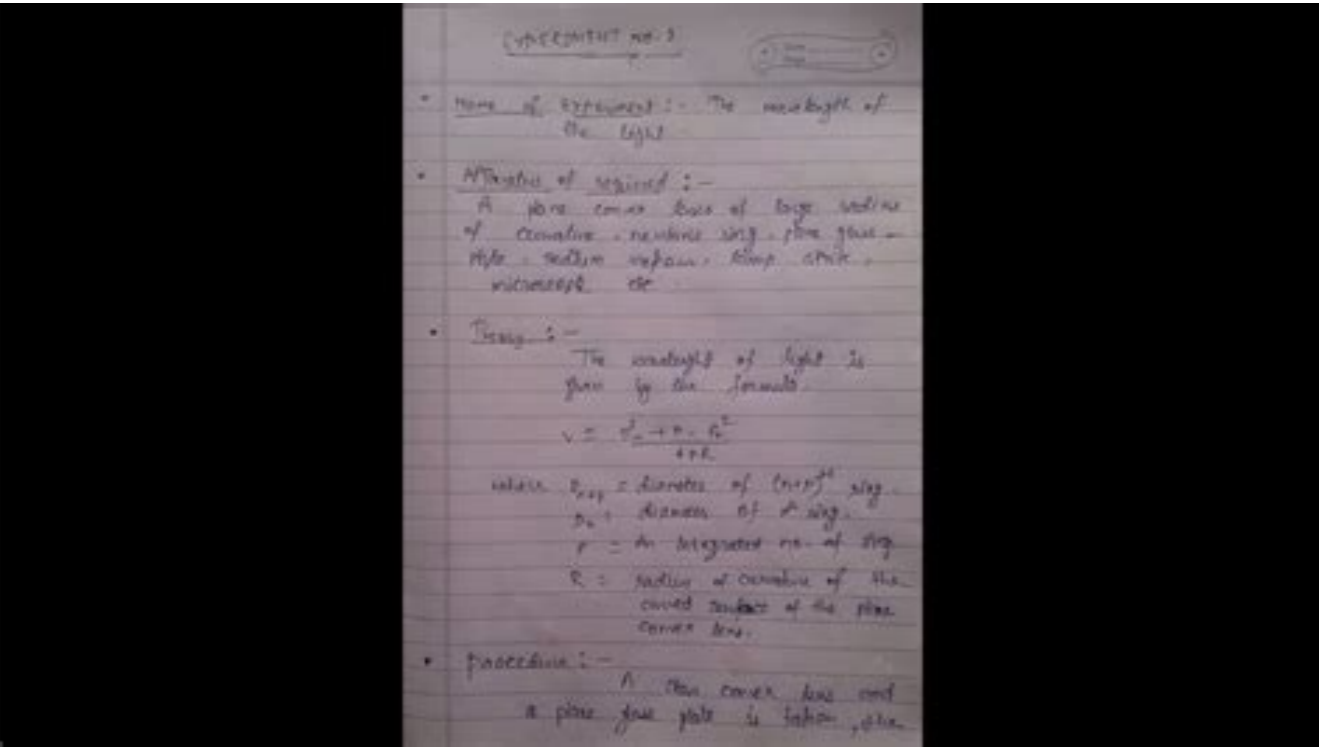 EXPERIMENT NO-
Name of Experiment :- The wavelength of
the light
Apparatus of required :-
A plane convex lens of large radius
of curvature, newtons ring, plane glass
plate, sodium vapour, lamp
microscope etc
Theory :-
The wavelength of light is
given by the formula
where D = diameter of (n+p)th ring.
Dn = diameter of ring.
P = An integrated no. of ring
R = radius of curvature of the
curved surface of the plane
convex lens.
procedure :-
A convex lens and
a plane glass plate is taken, the